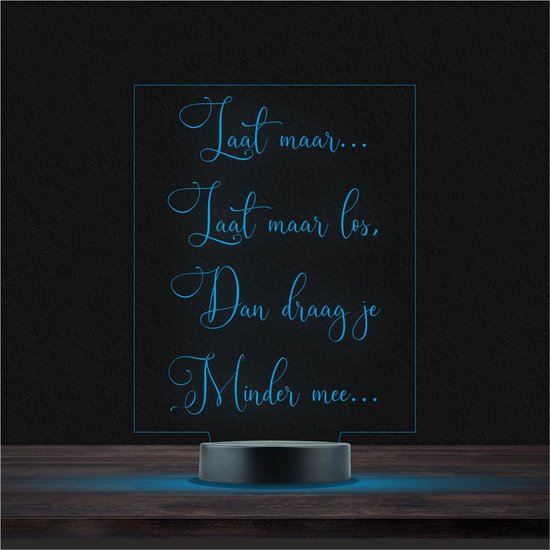 Laat maar...
Laat maar los,
Dan draag je
Minder mee...